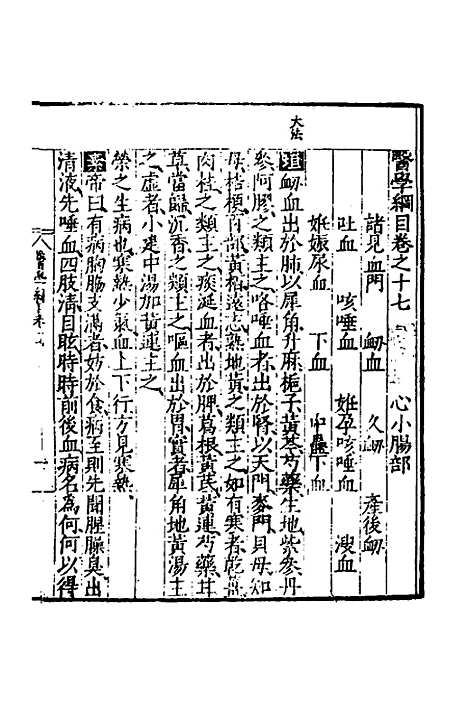 醫學綱目卷之十七 心小腸部
諸見血門 衂血 久衂 產後衂
吐血 咳唾血 姙孕咳唾血 溲血
姙娠尿血 下血 中蠱下血
大法
衂血出於肺以犀角升麻梔子黃芩芍藥生地紫參丹
參阿膠之類主之咯唾血者出於腎以天門麥門貝母知
母桔梗百部黃栢遠志熟地黃之類主之如有寒者乾薑
肉桂之類主之痰涎血者出於脾葛根黃芪黃連芍藥甘
草當歸沉香之類主之嘔血出於胃實者犀角地黃湯主
之虛者小建中湯加黃連主之
榮之生病也寒熱少氣血上下行方見寒熱
素帝曰有病胸脇支滿者妨於食病至則先聞腥臊臭出
清液先唾血四肢清目眩時時前後血病名為何何以得